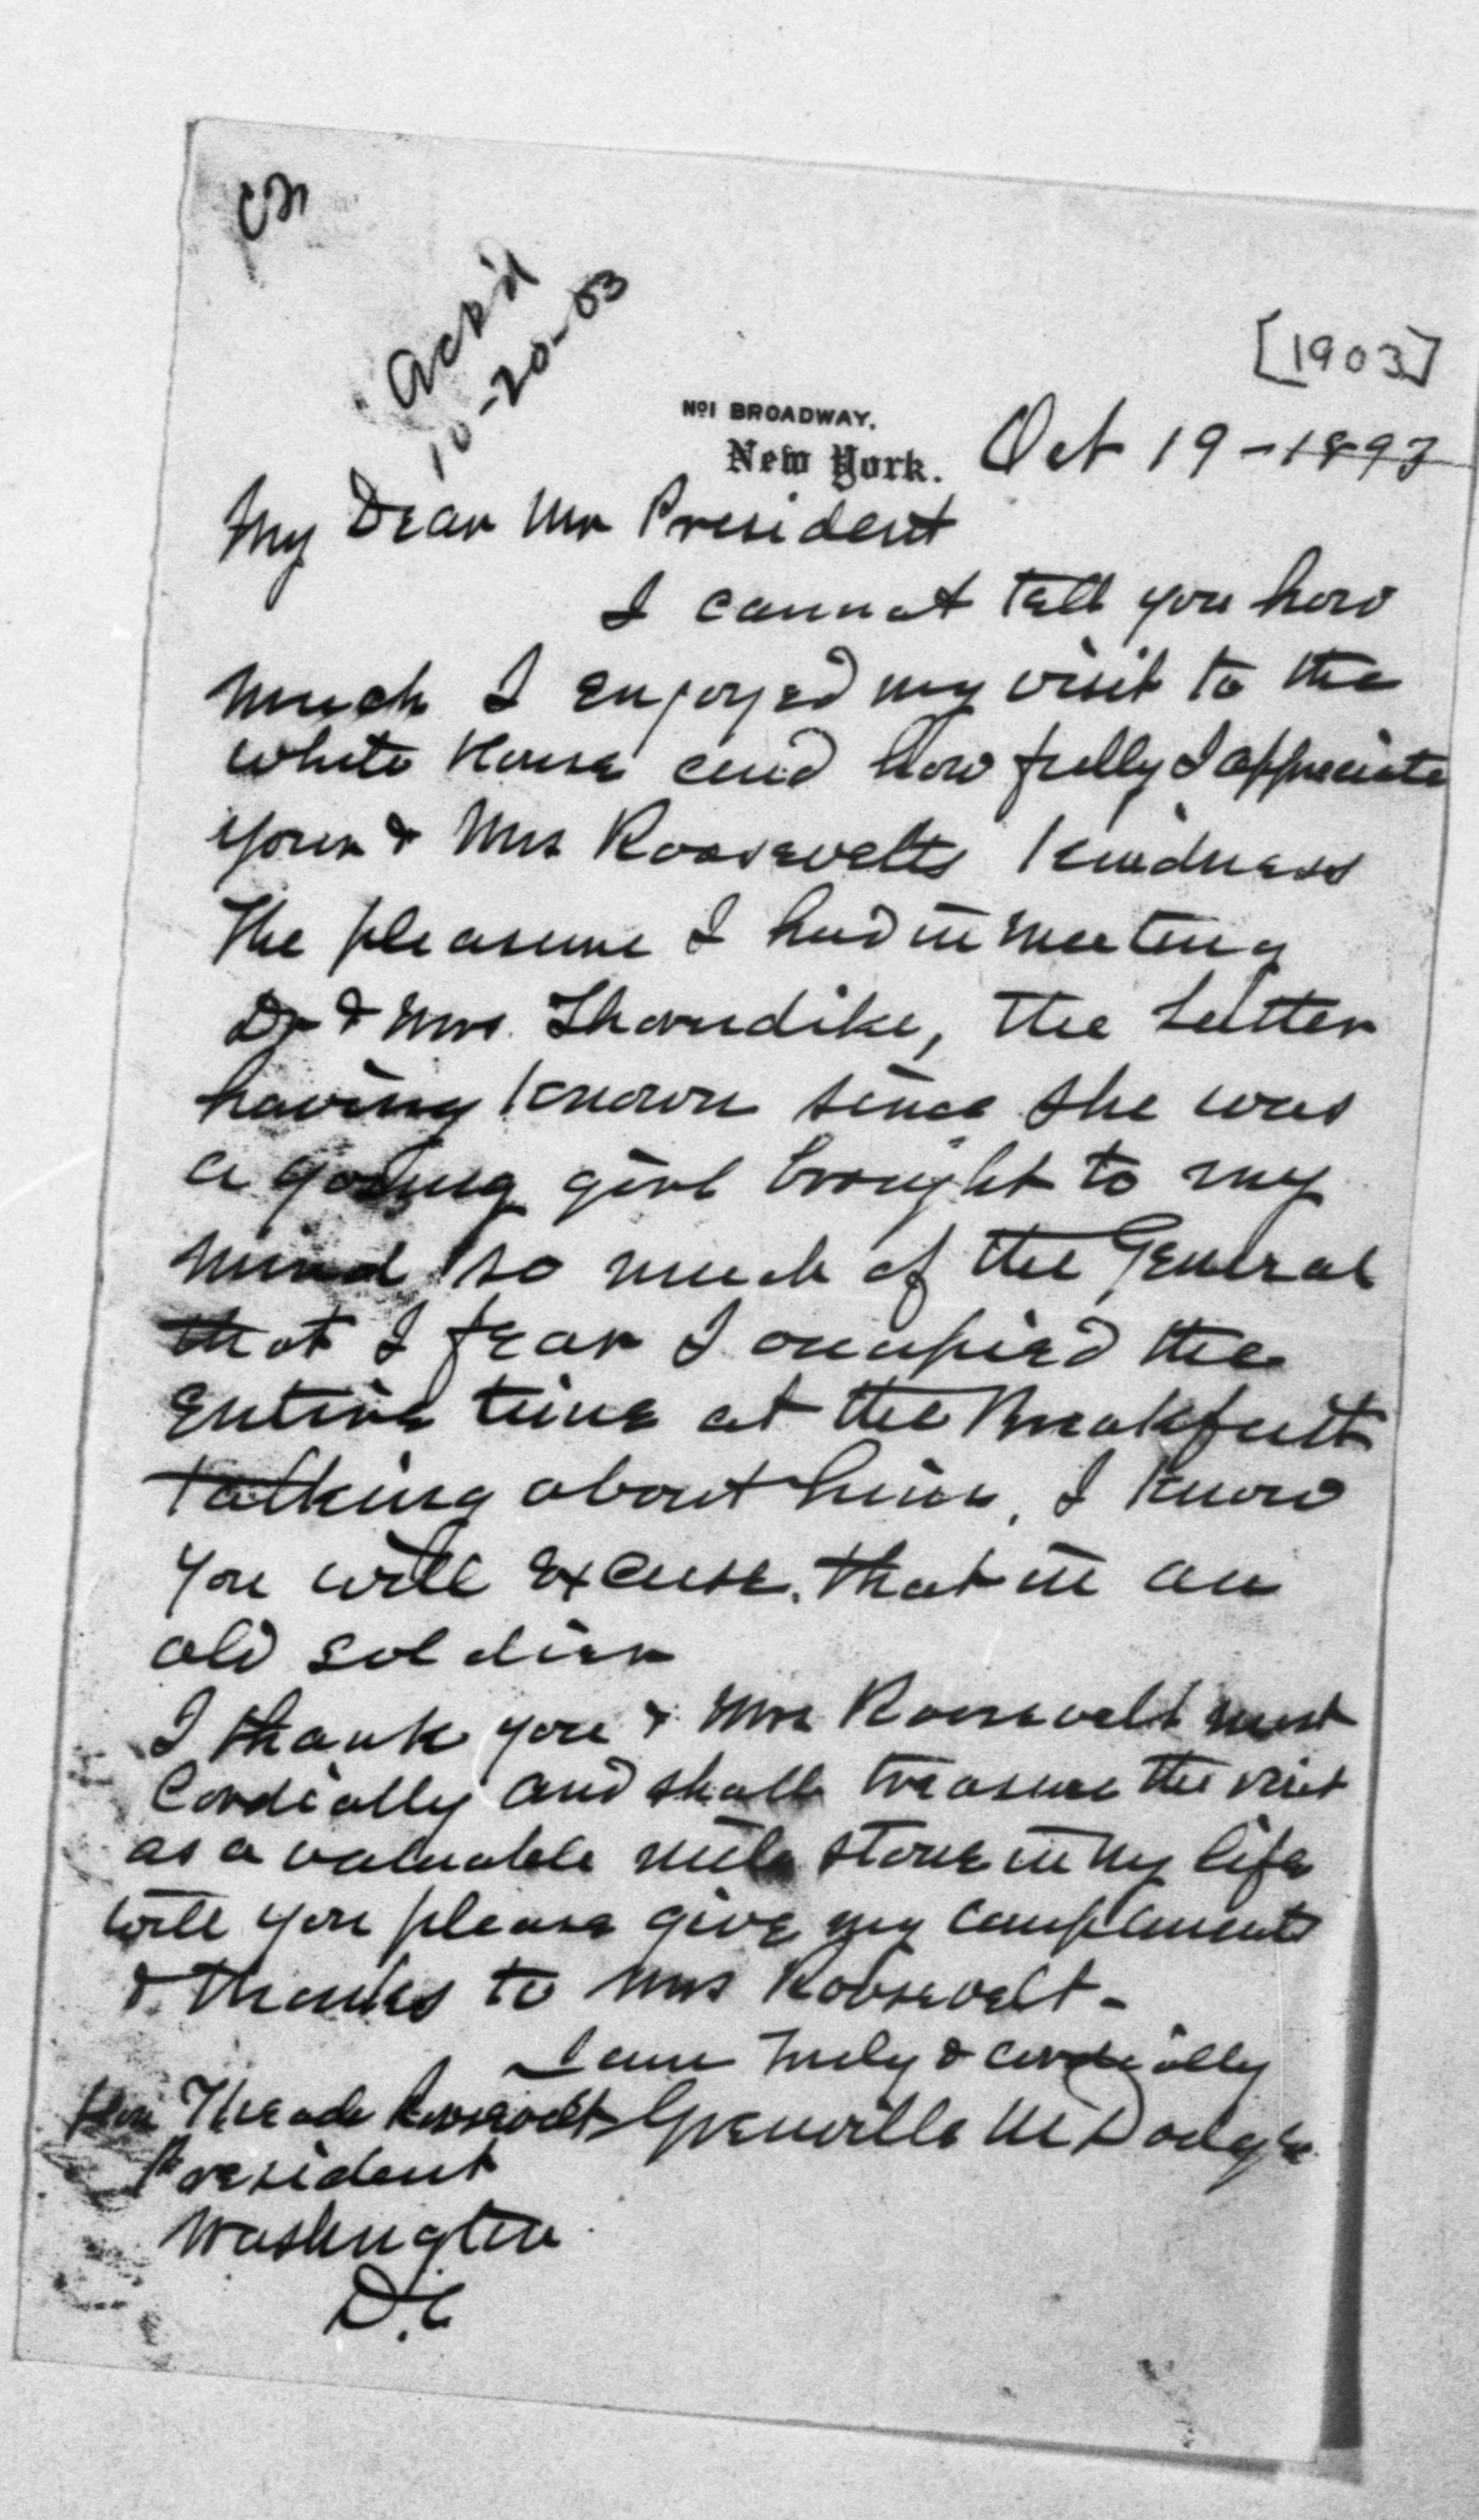 CF
Ack'd
10-20-03
[1903]
No 1 BROADWAY.
New York. Oct 19-1893
My Dear Mr President
I cannot tell you how
much I enjoyed my visit to the
white House and how fully I appreciate
your & Mrs Roosevelts kindness
The pleasure I had in meeting
Dr & Mrs. Thorndike, the latter
having known since she was
a young girl brought to my
mind so much of the General
that I fear I occupied the
entire time at the Breakfast
talking about him. I know
you will excuse that in an
old soldier
I thank you & Mrs Roosevelt most
Cordially and shall treasure the visit
as a valuable mile stone in my life
will you please give my compliments
& thanks to Mrs Roosevelt-
I am truly & cordially
Hon Theode Roosevelt Grenville M Dodge
President
Washington
D.C